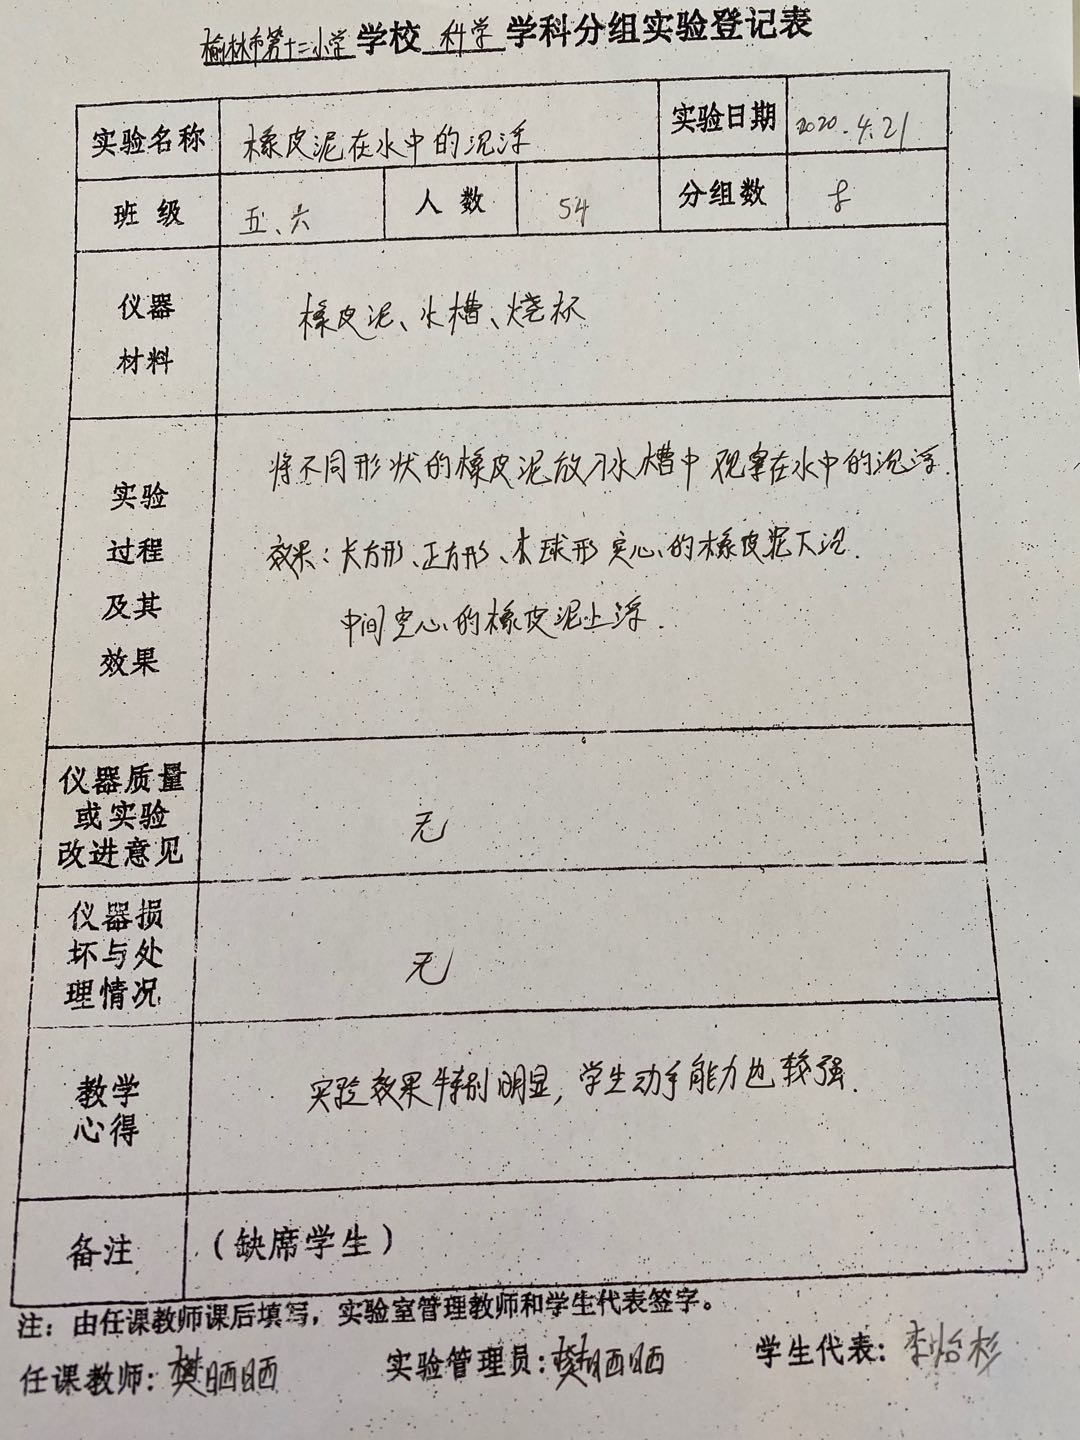 榆林市第十二小学学校 科学 学科分组实验登记表
实验名称 橡皮泥在水中的沉浮 实验日期 2020.4.21
班级 五、六 人数 54 分组数 8
仪器
材料
橡皮泥、水槽、烧杯
实验
过程
及其
效果
将不同形状的橡皮泥放水槽中观察在水中的沉浮.
效果:长方形、正方形、球形实心的橡皮泥下沉.
中间空心的橡皮泥上浮.
仪器质量
或实验
改进意见
无
仪器损
坏与处
理情况
无
教学
心得
实验效果特别明显,学生动手能力也较强.
备注 (缺席学生)
注:由任课教师课后填写,实验室管理教师和学生代表签字。
任课教师:樊晒晒 实验管理员:樊晒晒 学生代表:李怡杉